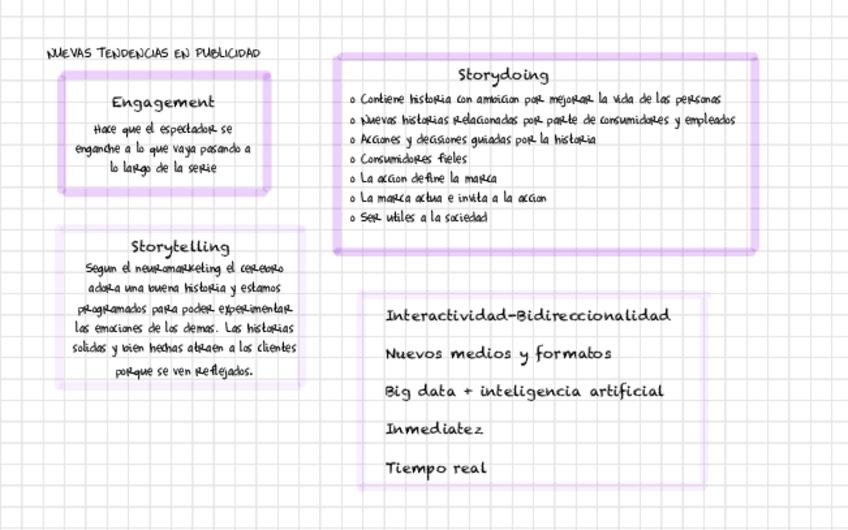 NUEVAS TENDENCIAS EN PUBLICIDAD
Engagement
Hace que el espectador se
enganche a lo que vaya pasando a
lo largo de la serie
Storytelling
Segun el neuromarketing el cerebro
adora una buena historia y estamos
programados para poder experimentar
las emociones de los demas. Las historias
solidas y bien hechas atraen a los clientes
porque se ven reflejados.
Storydoing
o Contiene historia con ambicion por mejorar la vida de las personas
o Nuevas historias relacionadas por parte de consumidores y empleados
o Acciones y decisiones guiadas por la historia
o Consumidores fieles
o La accion define la marca
o La marca actua e invita a la accion
o Ser utiles a la sociedad
Interactividad-Bidireccionalidad
Nuevos medios y formatos
Big data + inteligencia artificial
Inmediatez
Tiempo real